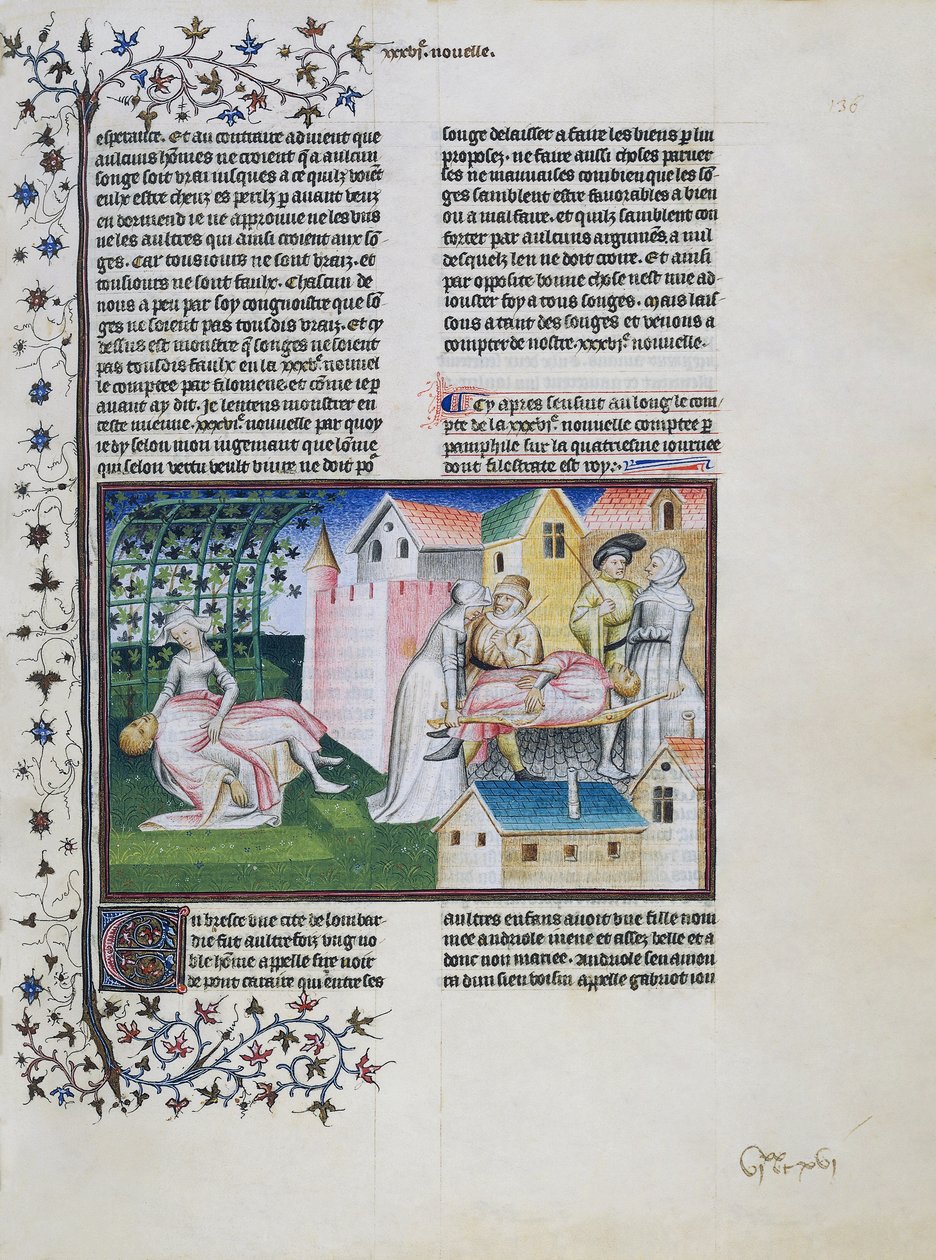 xxxvie. nouelle.
136
esperance. Et au contraire aduient que
aulcuns hōmes ne croient q̄ aulcun
songe soit vrai iusques a ce quilz voient
eulx estre cheuz es perilz p auant veuz
en dormend ie ne approuue ne les vns
ne les aultres qui ainsi croient aux sō
ges. Car tousiours ne sont vraiz. et
tousiours ne sont faulx. Chascun de
nous a peu par soy congnoistre que sō
ges ne soient pas tousdis vraiz. Et cy
dessus est monstre q̄ songes ne soient
pas tousdis faulx en la xxxve. nouuel
le comptee par filomene. et cōme ie p
auant ay dit. Je lentens monstrer en
ceste mienne. xxxvie. nouuelle par quoy
ie dy selon mon iugemant que lōme
qui selon vertu veult viure ne doit po
songe delaisser a faire les biens p lui
proposez. ne faire aussi choses paruer
ses ne mauuaises combien que les sō
ges samblent estre fauorables a bien
ou a mal faire. et quilz samblent con
forter par aulcuns argumēs. a nul
desquelz len ne doit croire. Et ainsi
par opposite bonne chose nest mie ad
iouster foy a tous songes. mais lais
sons a tant des songes et venons a
compter de nostre. xxxvie. nouuelle.
Cy apres sensuit au long le com
pte de la xxxvie. nouuelle comptee p
pamphile sur la quatriesme iournee
dont filestrate est roy:.
En bresse vne cite de lombar
die fut aultrefoiz vng no
ble hōme appelle sire noir
de pont caraire qui entre ses
aultres enfans auoit vne fille nom
mee andriole iuene et assez belle et a
donc non mariee. Andriole senamou
ra dun sien voisin appelle gabriot iou
vixx et xvi